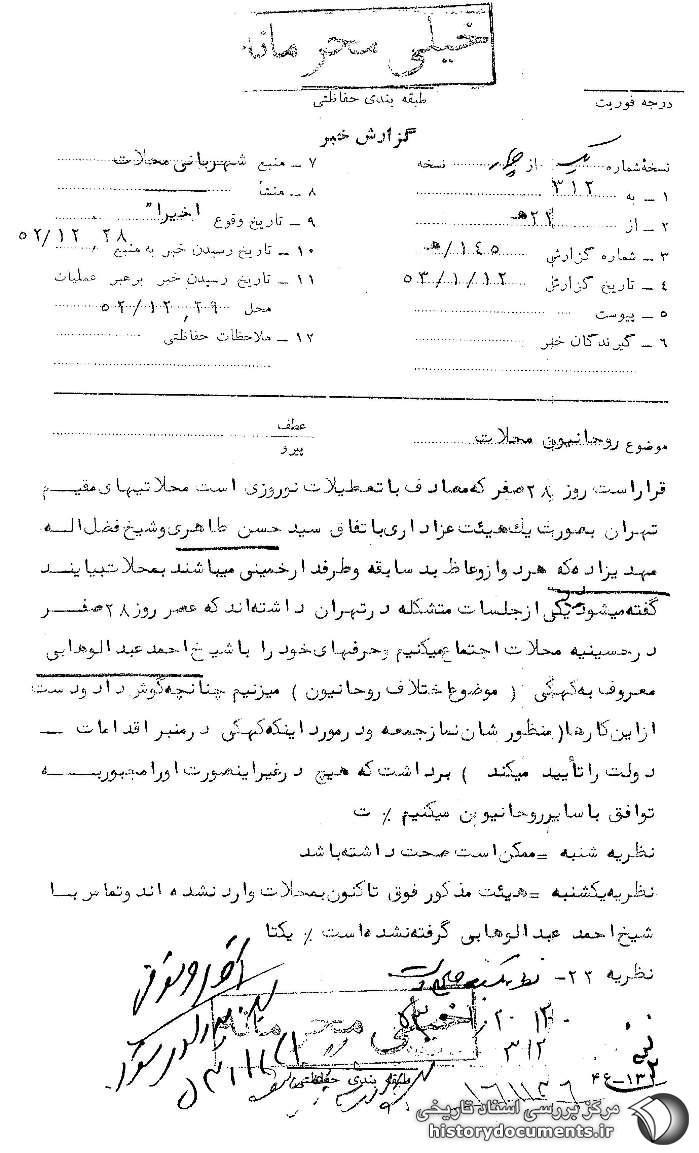 خیلی محرمانه
طبقه بندی حفاظتی
درجه فوریت
گزارش خبر
نسخهٔ شماره یک از چهار نسخه
۱ ـ به ۳۱۲
۲ ـ از ۲۲ ھ
۳ ـ شماره گزارش ۱۴۵/ھ
۴ ـ تاریخ گزارش ۵۳/۱/۱۲
۵ ـ پیوست
۶ ـ گیرندگان خبر
۷ ـ منبع شهربانی محلات
۸ ـ منشأ
۹ ـ تاریخ وقوع اخیرا"
۱۰ ـ تاریخ رسیدن خبر به منبع ۵۲/۱۲/۲۸
۱۱ ـ تاریخ رسیدن خبر برهبر عملیات
محل ۵۲/۱۲/۲۹
۱۲ ـ ملاحظات حفاظتی
موضوع روحانیون محلات
عطف
پیرو
قراراست روز ۲۸ صفر که مصادف با تعطیلات نوروزی است محلاتیهای مقیم
تهران بصورت یك هیئت عزاداری با تفاق سید حسن طاهری و شیخ فضل اله
مهدیزاده که هردو ازوعاظ بد سابقه و طرفدار خمینی میباشند بمحلات بیایند
گفته میشود یکی از جلسات متشکله در تهران داشته اند که عصر روز ۲۸ صفر
در حسینیه محلات اجتماع میکنیم و حرفهای خود را با شیخ احمد عبدالوهابی
معروف به کهکی ( موضوع اختلاف روحانیون ) میزنیم چنانچه گوش داد و دست
ازاین کارها( منظور شان نماز جمعه و در مورد اینکه کهکی در منبر اقدامات ـ
دولت را تأیید میکند ) برداشت که هیچ در غیر اینصورت اورا مجبور بـه
توافق با سایر روحانیون میکنیم ٪ ت
نظریه شنبه = ممکن است صحت داشته باشد
نظریه یکشنبه = هیئت مذکور فوق تاکنون بمحلات وارد نشده اند و تماس با
شیخ احمد عبدالوهابی گرفته نشده است ٪ یکتا
نظریه ۲۲-
خیلی محرمانه
۳۱۲
طبقه بندی حفاظتی
مرکز بررسی اسناد تاریخی
historydocuments.ir